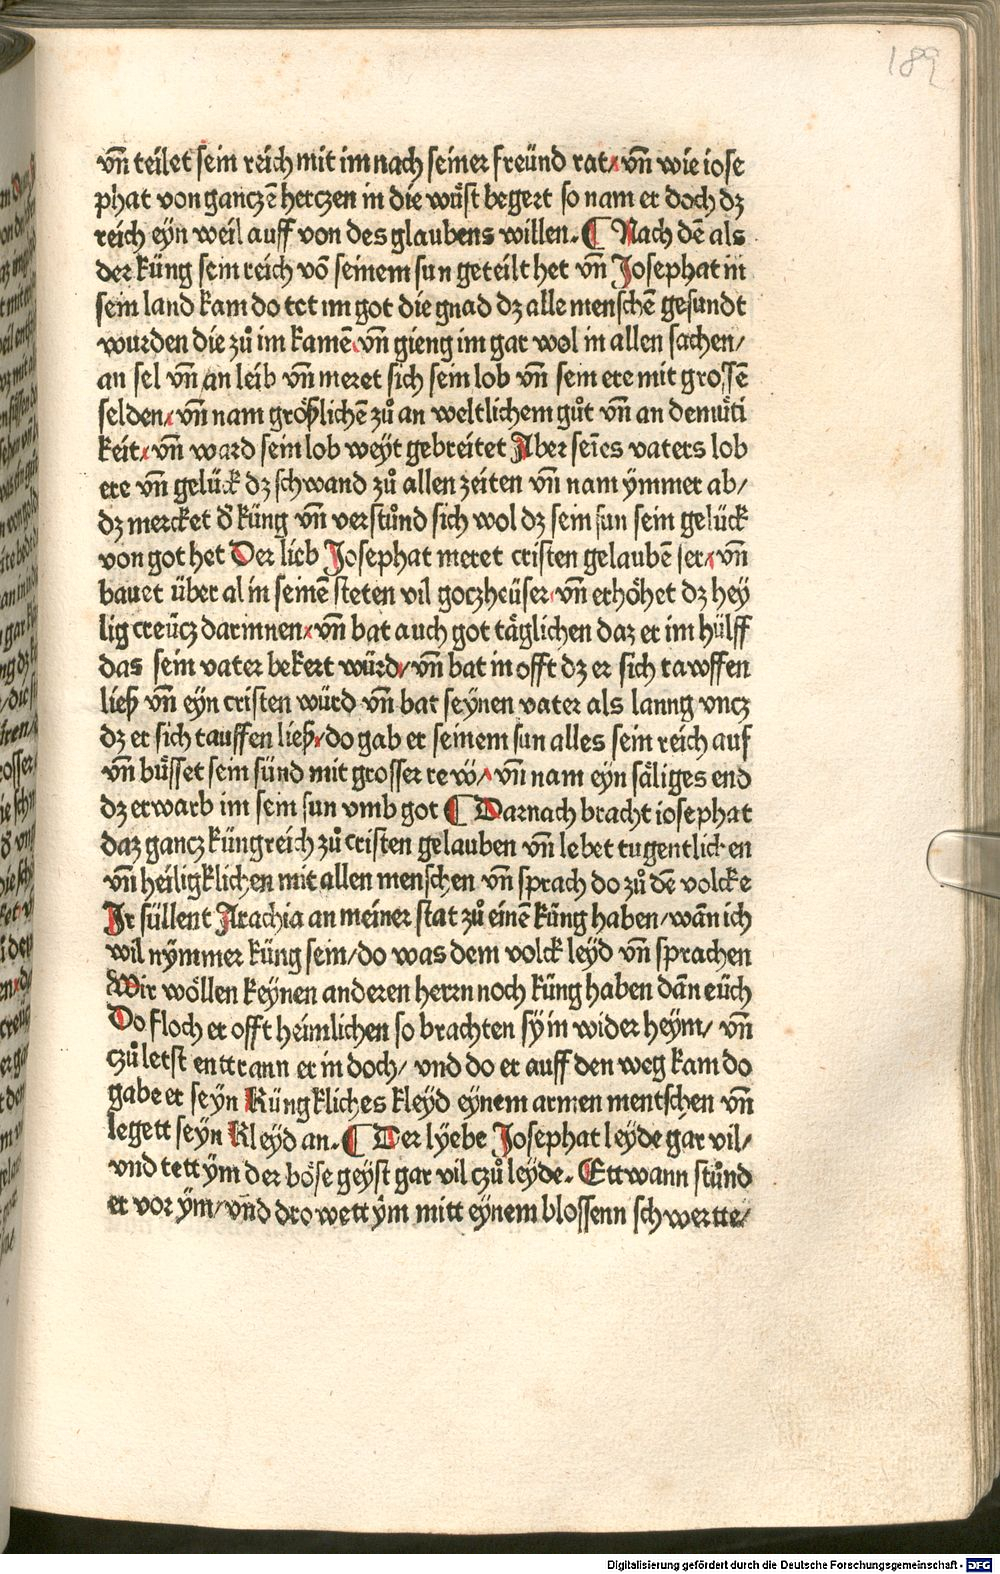 189
vn̄ teilet sein reich mit im nach seiner freünd rat / vn̄ wie iose
phat von ganczē herczen in die wuͤst begert so nam er doch dz
reich eyn weil auff von des glaubens willen. ¶ Nach dē als
der küng sein reich vō seinem sun geteilt het vn̄ Josephat in
sein land kam do tet im got die gnad dz alle menschē gesundt
wurden die zuͦ im kamē / vn̄ gieng im gar wol in allen sachen /
an sel vn̄ an leib vn̄ meret sich sein lob vn̄ sein ere mit grossē
selden / vn̄ nam groͤßlichē zuͦ an weltlichem guͦt vn̄ an demuͤti
keit / vn̄ ward sein lob weyt gebreitet Aber seīes vaters lob
ere vn̄ gelück dz schwand zuͦ allen zeiten vn̄ nam ymmer ab /
dz mercket d̕ küng vn̄ verstuͦnd sich wol dz sein sun sein gelück
von got het Der lieb Josephat meret cristen gelaubē ser / vn̄
bauet über al in seinē steten vil goczheüser / vn̄ erhoͤhet dz hey
lig creücz darinnen / vn̄ bat auch got taͤglichen daz er im hülff
das sein vater bekert würd / vn̄ bat in offt dz er sich tawffen
ließ vn̄ eyn cristen würd vn̄ bat seynen vater als lanng vncz
dz er sich tauffen ließ / do gab er seinem sun alles sein reich auf
vn̄ buͤsset sein sünd mit grosser rew / vn̄ nam eyn saͤliges end
dz erwarb im sein sun vmb got ¶ Darnach bracht iosephat
daz gancz küngreich zuͦ cristen gelauben vn̄ lebet tugentlicken
vn̄ heiligklichen mit allen menschen vn̄ sprach do zuͦ dē volcke
Jr süllent Arachia an meiner stat zuͦ einē küng haben / wān ich
wil nymmer küng sein / do was dem volck leyd vn̄ sprachen
Wir woͤllen keynen anderen herrn noch küng haben dān eüch
Do floch er offt heimlichen so brachten sy in wider heym / vn̄
czuͦ letst enttrann er in doch / vnd do er auff den weg kam do
gabe er seyn Küngkliches kleyd eynem armen mentschen vn̄
legett seyn Kleyd an. ¶ Der lyebe Josephat leyde gar vil /
vnd tett ym der boͤse geyst gar vil czuͦ leyde. Ettwann stuͦnd
er vor ym / vnd drowett ym mitt eynem blossenn schwertte /
Digitalisierung gefördert durch die Deutsche Forschungsgemeinschaft - DFG